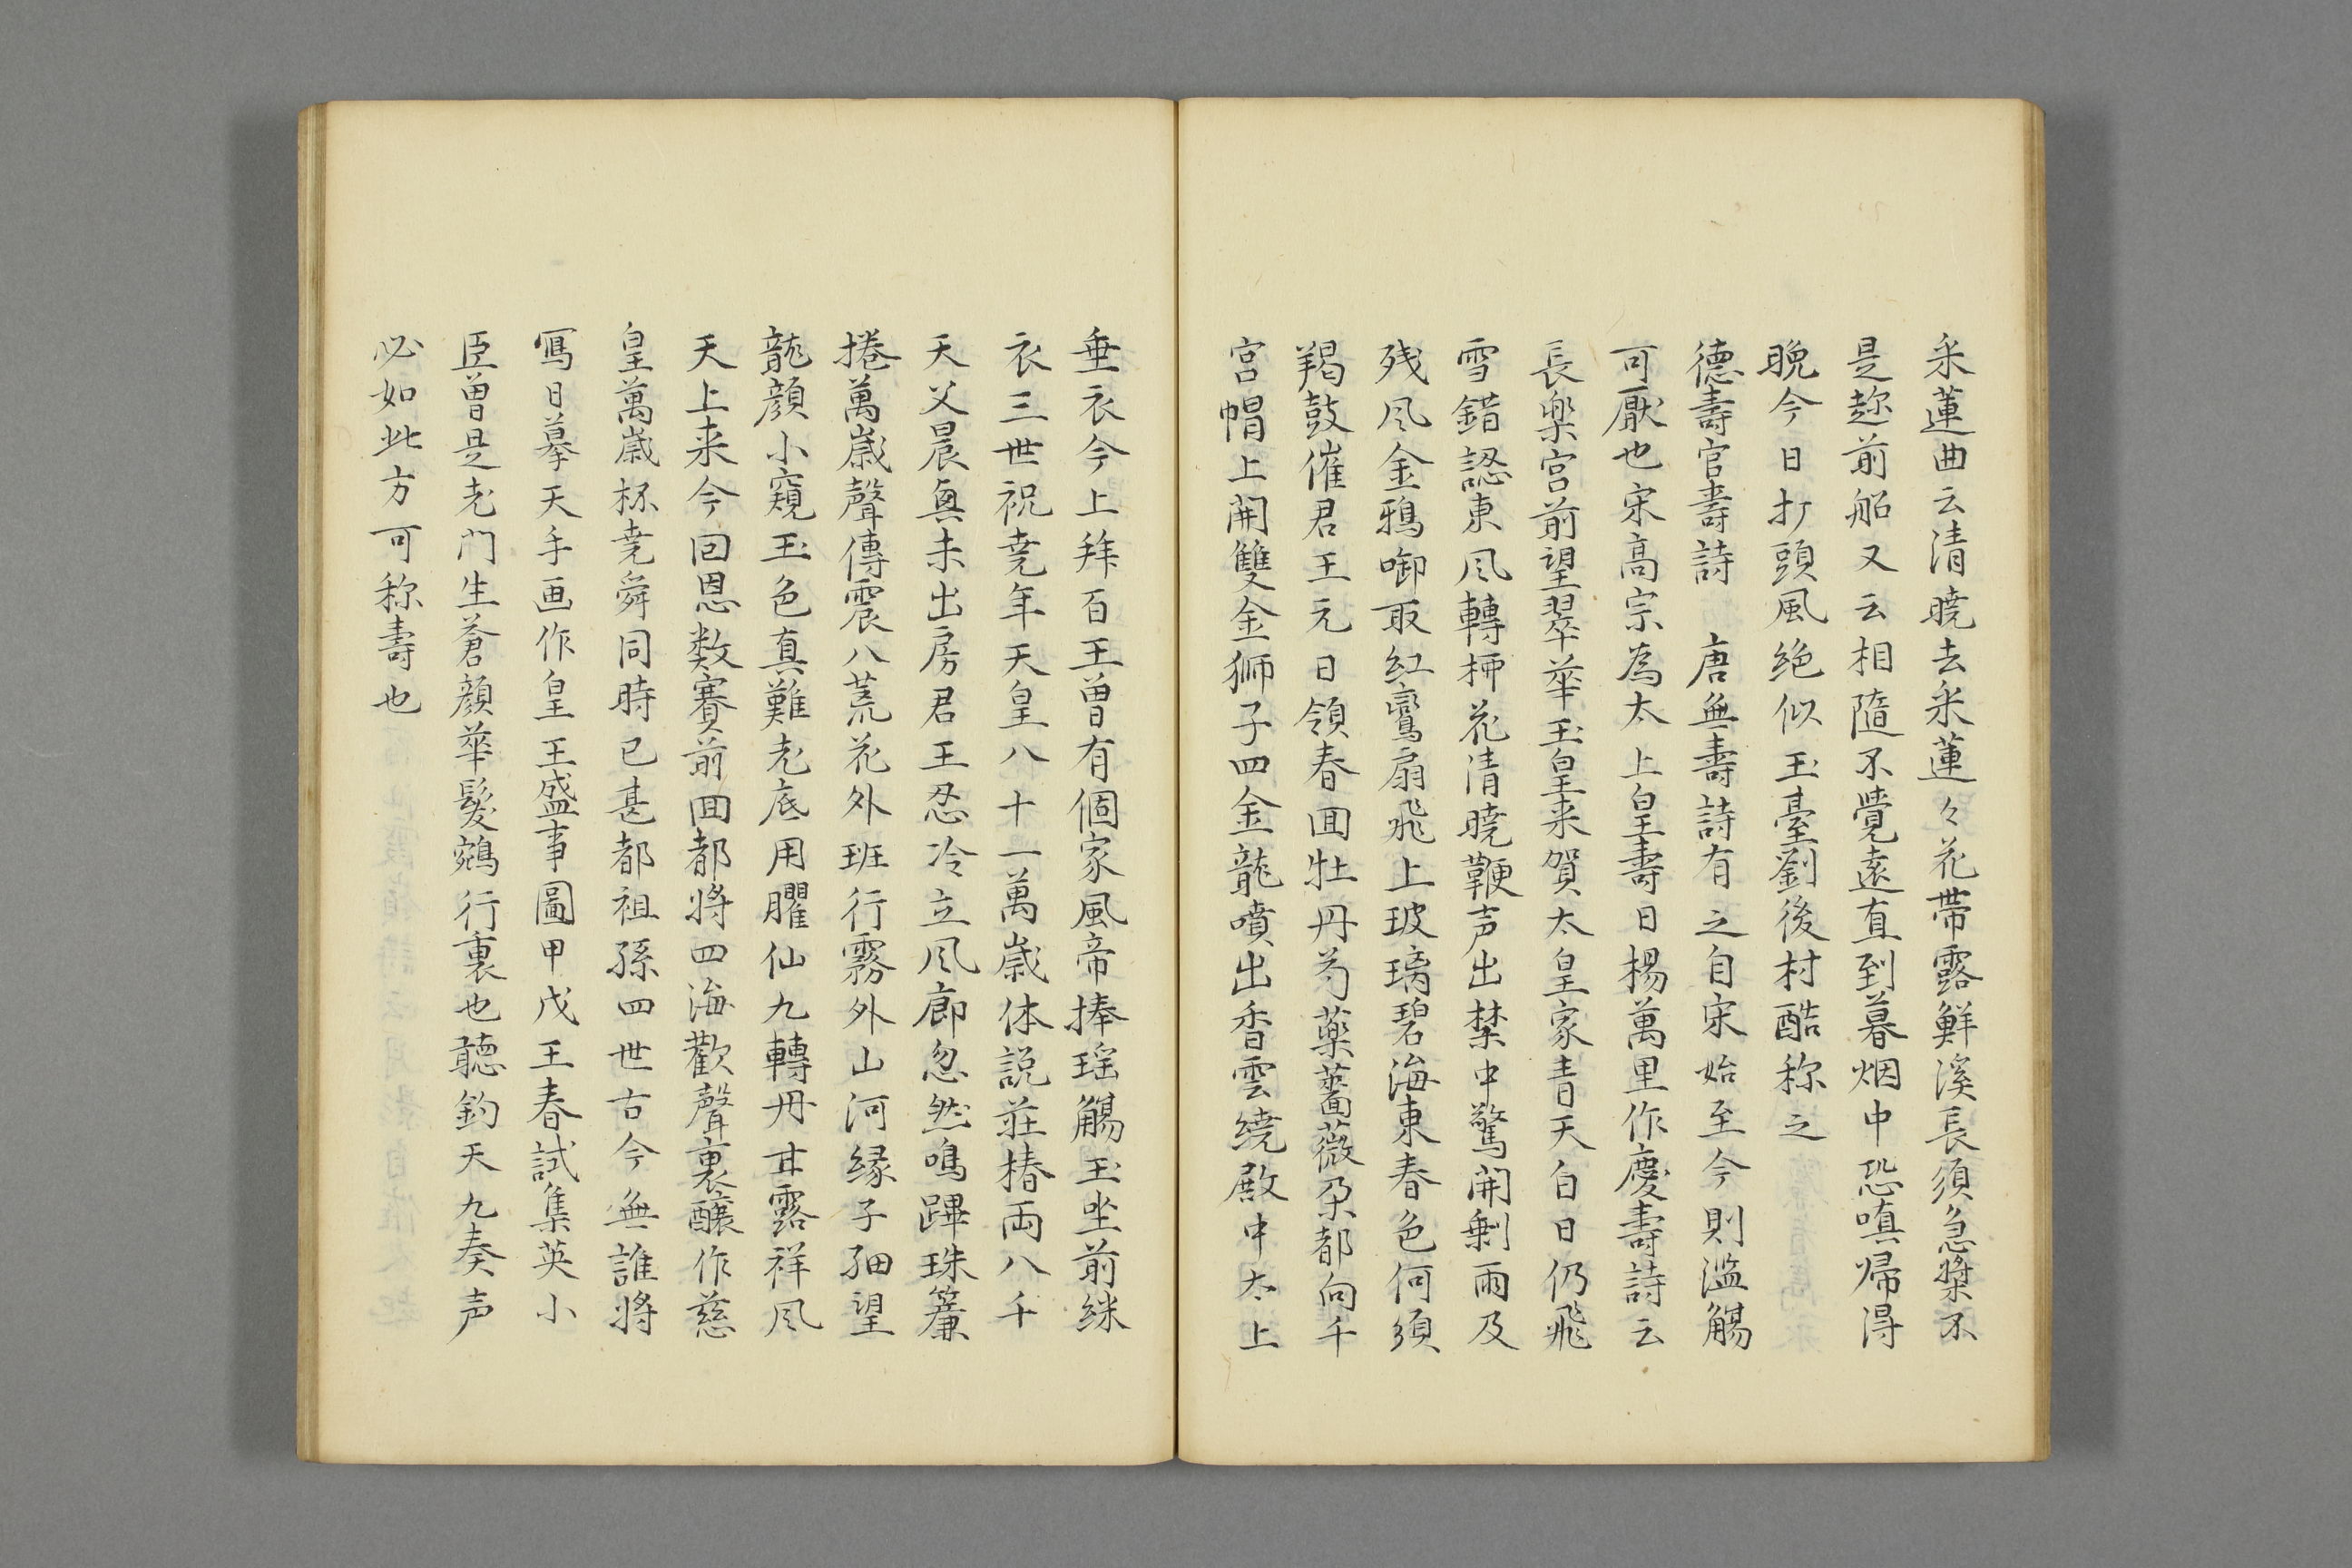 采蓮曲云清暁去采蓮々花帯露鮮溪長須急槳不
是趂前船又云相隨不覺遠直到暮烟中恐嗔帰得
晩今日打頭風絶似玉臺劉後村酷称之
德壽官壽詩　唐無壽詩有之自宋始至今則濫觴
可厭也宋高宗為太上皇壽日楊萬里作慶壽詩云
長楽宮前望翠華玉皇来賀太皇家青天白日仍飛
雪錯認東风轉栁花清暁鞭声出禁中驚開剰雨及
残风金鴉啣取紅鸞扇飛上玻璃碧海東春色何須
羯鼓催君王元日領春囬牡丹芍藥薔薇朶都向千
宮帽上開雙金狮子四金龍噴出香雲繞殿中太上
垂衣今上拜百王曽有個家風帝捧瑶觴玉坐前綵
衣三世祝尭年天皇八十一萬歳体説莊椿両八千
天父晨輿未出房君王忍冷立风廊忽然鳴蹕珠簾
捲萬歳聲傳震八荒花外班行霧外山河縁子細望
龍顔小窺玉色真難老底用臞仙九轉丹甘露祥风
天上来今回恩数賽前囬都将四海歡聲裏釀作慈
皇萬歳杯尭舜同時已甚都祖孫四世古今無誰将
寫日摹天手画作皇王盛事圖甲戊王春試集英小
臣曽是老門生蒼顔華髮鵷行裏也聽鈞天九奏声
必如此方可称壽也